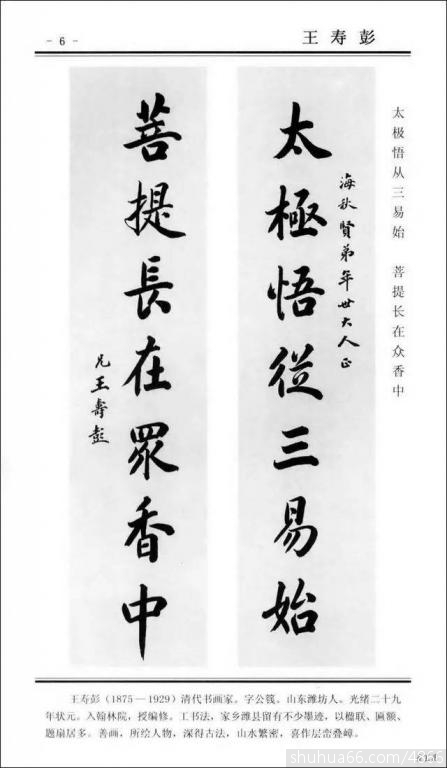 - 6 -
王寿彭
太极悟从三易始 菩提长在众香中
太極悟從三易始
海秋賢弟年世大人正
菩提長在眾香中
兄王壽彭
王寿彭(1875—1929)清代书画家。字公筏、山东潍坊人、光绪二十九
年状元。入翰林院,授编修。工书法,家乡潍县留有不少墨迹,以楹联、匾额、
题扇居多。善画,所绘人物,深得古法,山水繁密,喜作层峦叠嶂。